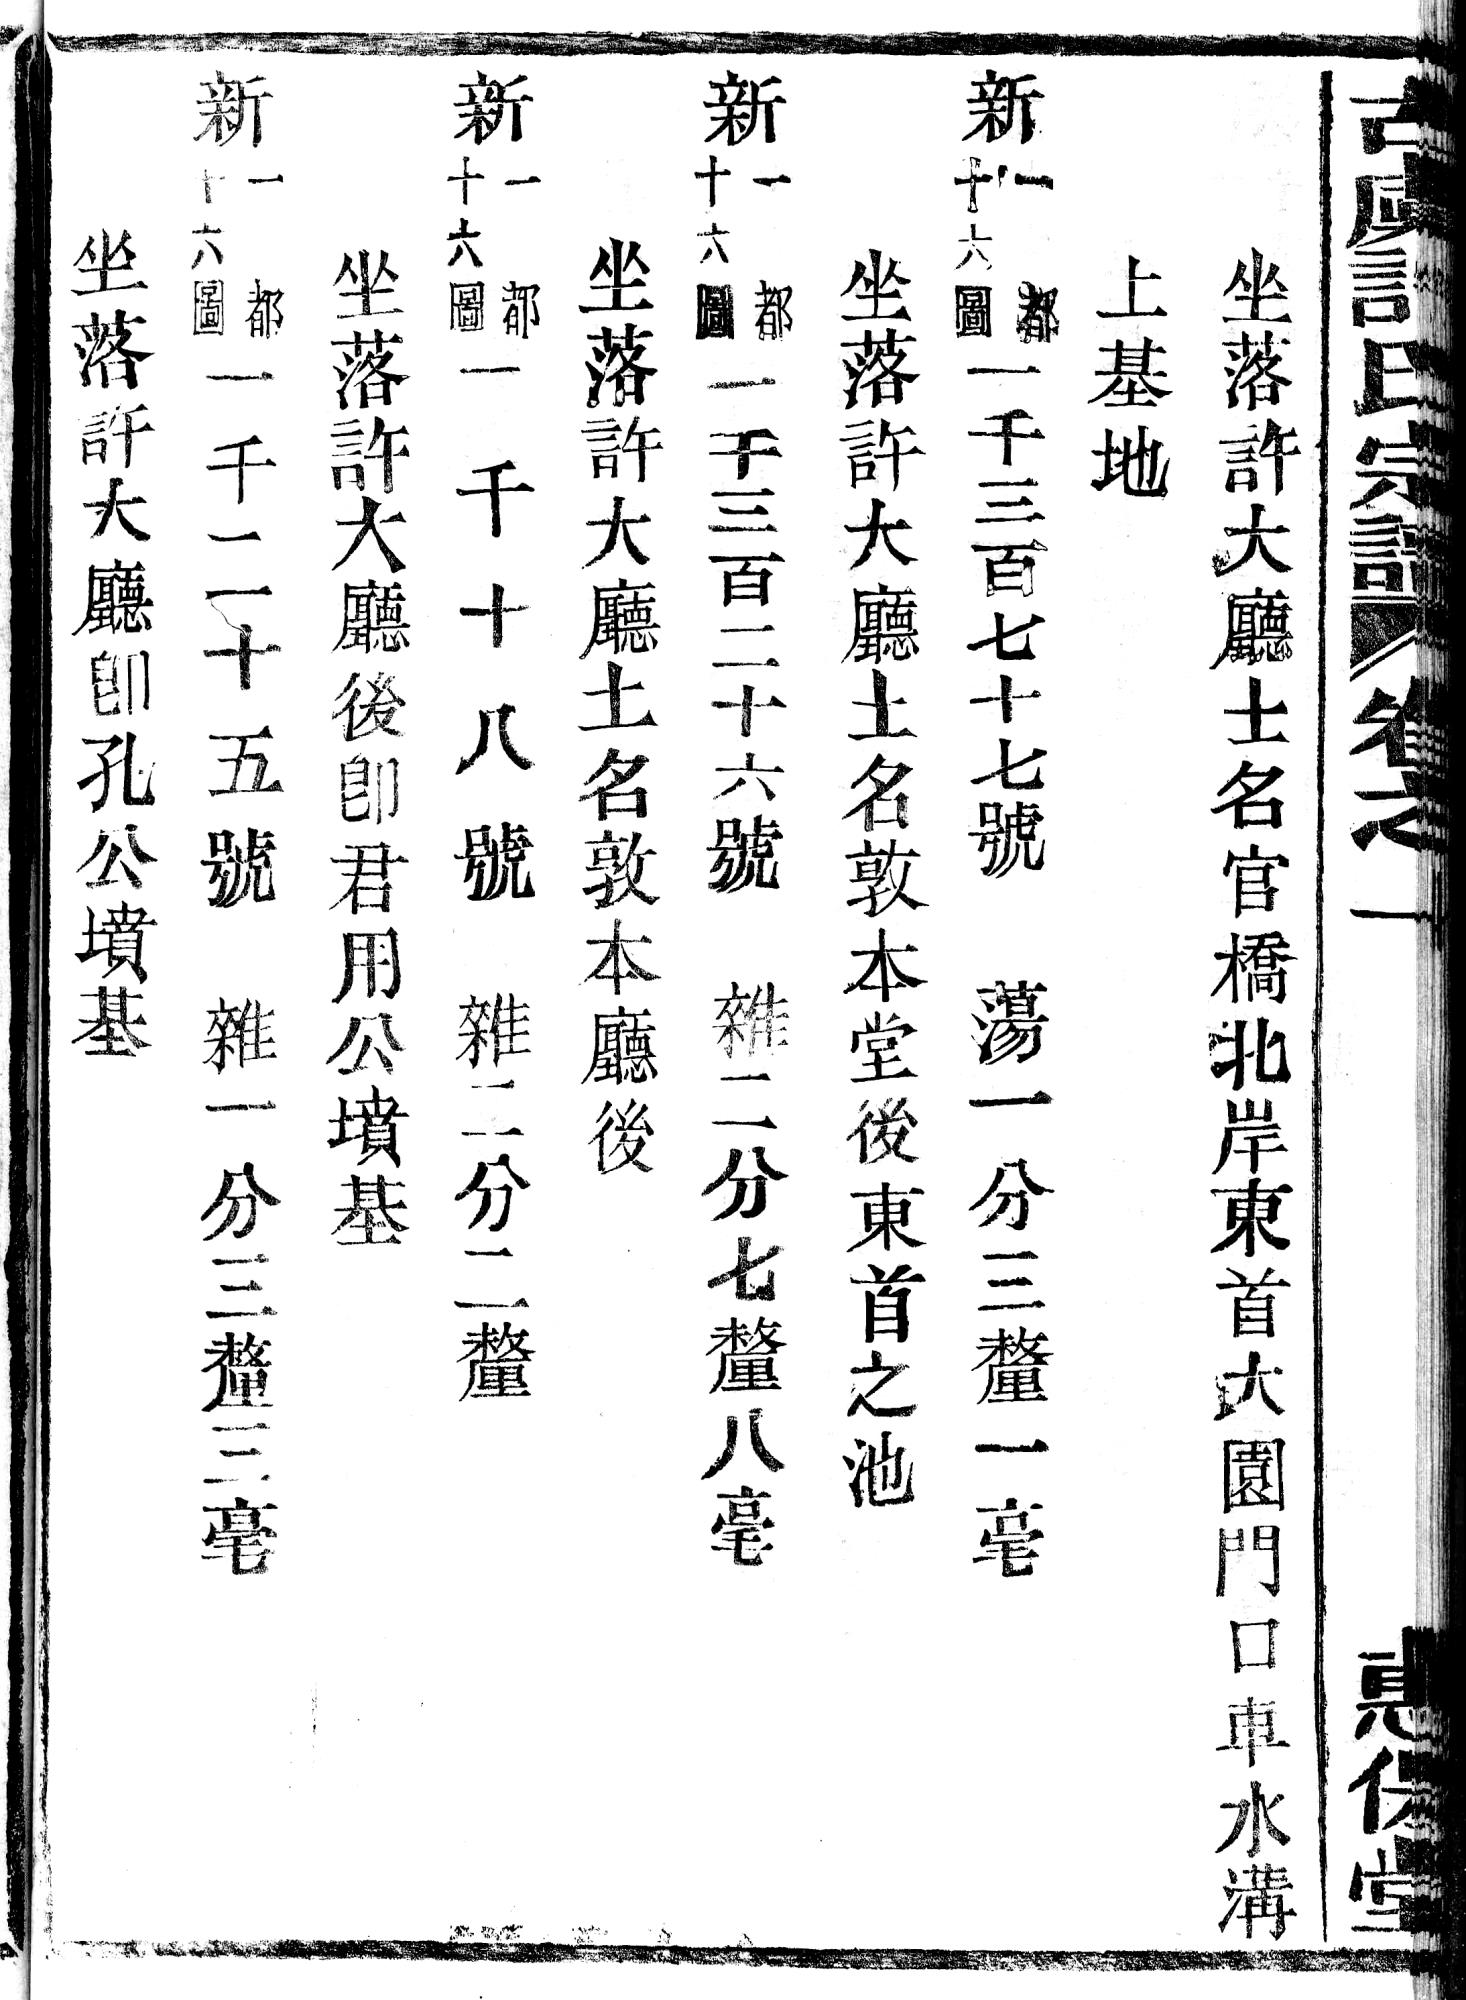 古虞許氏宗譜 卷之一 惠保堂
坐落許大廳土名官橋北岸東首大園門口車水溝
上基地
新一都十六圖一千三百七十七號 蕩一分三釐一毫
坐落許大廳土名敦本堂後東首之池
新一都十六圖一千三百二十六號 雜二分七釐八毫
坐落許大廳土名敦本廳後
新一都十六圖一千十八號 雜二分二釐
坐落許大廳後卽君用公墳基
新一都十六圖一千一二十五號 雜一分三釐三毫
坐落許大廳卽孔公墳基